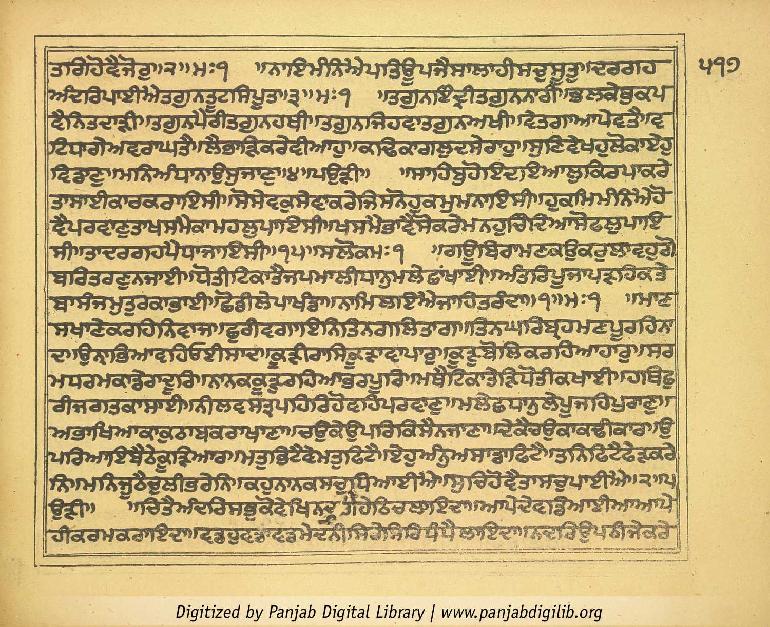 ਤਾਰਿਹੋਵੈਜੋਰੁ॥੨॥ਮਃ੧ ॥ਨਾਇਮੰਨਿਐਪਤਿਊਪਜੈਸਾਲਾਹੀਸਚੁਸੂਤੁ॥ਦਰਗਹ
੫੧੭
ਅੰਦਰਿਪਾਈਐਤਗੁਨਤੂਟਸਿਪੂਤ॥੩॥ਮਃ੧ ॥ਤਗੁਨਇੰਦ੍ਰੀਤਗੁਨਨਾਰੀ॥ਭਲਕੇਥੁਕਪ
ਵੈਨਿਤਦਾੜੀ॥ਤਗੁਨਪੈਰੀਤਗੁਨਹਥੀ॥ਤਗੁਨਜਿਹਵਾਤਗੁਨਅਖੀ॥ਵੇਤਗਾਆਪੇਵਤੈ॥ਵ
ਟਿਧਾਗੇਅਵਰਾਘਤੈ॥ਲੈਭਾੜਿਕਰੇਵੀਆਹੁ॥ਕਢਿਕਾਗਲੁਦਸੇਰਾਹੁ॥ਸੁਣਿਵੇਖਹੁਲੋਕਾਏਹੁ
ਵਿਡਾਣੁ॥ਮਨਿਅੰਧਾਨਾਉਸੁਜਾਣੁ॥੪॥ਪਉੜੀ॥ ॥ਸਾਹਿਬੁਹੋਇਦਇਆਲੁਕਿਰਪਾਕਰੇ
ਤਾਸਾਈਕਾਰਕਰਾਇਸੀ॥ਸੋਸੇਵਕੁਸੇਵਾਕਰੇਜਿਸਨੋਹੁਕਮੁਮਨਾਇਸੀ॥ਹੁਕਮਿਮੰਨਿਐਹੋ
ਵੈਪਰਵਾਣੁਤਾਖਸਮੈਕਾਮਹਲੁਪਾਇਸੀ॥ਖਸਮੈਭਾਵੈਸੋਕਰੇਮਨਹੁਚਿੰਦਿਆਸੋਫਲੁਪਾਇ
ਸੀ॥ਤਾਦਰਗਹਪੈਧਾਜਾਇਸੀ॥੧੫॥ਸਲੋਕਮਃ੧ ॥ਗਊਬਿਰਾਹਮਣਕਉਕਰੁਲਾਵਹੁਗੋ
ਬਰਿਤਰਣੁਨਜਾਈ॥ਧੋਤੀਟਿਕਾਤੈਜਪਮਾਲੀਧਾਨੁਮਲੇਛਾਂਖਾਈ॥ਅੰਤਰਿਪੂਜਾਪੜਹਿਕਤੇ
ਬਾਸੰਜਮੁਤੁਰਕਾਭਾਈ॥ਛੋਡੀਲੇਪਾਖੰਡਾ॥ਨਾਮਿਲਇਐਜਾਹਿਤਰੰਦਾ॥੧॥ਮਃ੧ ॥ਮਾਣ
ਸਖਾਣੇਕਰਹਿਨਿਵਾਜ॥ਛੁਰੀਵਗਾਇਨਿਤਿਨਗਲਿਤਾਗ॥ਤਿਨਘਰਿਬ੍ਰਹਮਣਪੂਰਹਿਨਾ
ਦ॥ਉਨਾਭਿਆਵਹਿਓਈਸਾਦ॥ਕੂੜੀਰਾਸਿਕੂੜਾਵਾਪਾਰੁ॥ਕੂੜੁਬੋਲਿਕਰਹਿਆਹਾਰੁ॥ਸਰ
ਮਧਰਮਕਾਡੇਰਾਦੂਰਿ॥ਨਾਨਕਕੂੜੁਰਹਿਆਭਰਪੂਰਿ॥ਮਥੈਟਿਕਾਤੇੜਿਧੋਤੀਕਖਾਈ॥ਹਥਿਛੁ
ਰੀਜਗਤਕਾਸਾਈ॥ਨੀਲਵਸਤ੍ਰਪਹਿਰਿਹੋਵਹਿਪਰਵਾਣੁ॥ਮਲੇਛਧਾਨੁਲੇਪੂਜਹਿਪੁਰਾਣੁ॥
ਅਭਾਖਿਆਕਾਕੁਠਾਬਕਰਾਖਾਣਾ॥ਚਉਕੇਉਪਰਿਕਿਸੈਨਜਾਣਾ॥ਦੇਕੈਚਉਕਾਕਢੀਕਾਰ॥ਉ
ਪਰਿਆਇਬੈਠੇਕੂੜਿਆਰ॥ਮਤੁਭਿਟੈਵੇਮਤੁਭਿਟੈ॥ਇਹੁਅੰਨੁਅਸਾਡਾਫਿਟੈ॥ਤਨਿਫਿਟੈਫੇੜਕਰੇ
ਨਿ॥ਮਨਿਜੂਠੈਚੁਲੀਭਰੇਨਿ॥ਕਹੁਨਾਨਕਸਚੁਧਿਆਈਐ॥ਸੁਚਿਹੋਵੈਤਾਸਚੁਪਾਈਐ॥੨॥ਪ
ਉੜੀ॥ ॥ਚਿਤੈਅੰਦਰਿਸਭੁਕੋਵੇਖਿਨਦਰੀਹੇਠਿਚਲਾਇਦਾ॥ਆਪੇਦੇਵਡਿਆਈਆਆਪੇ
ਹੀਕਰਮਕਰਾਇਦਾ॥ਵਡਹੁਵਡਾਵਡਮੇਦਨੀਸਿਰੇਸਿਰਿਧੰਧੈਲਾਇਦਾ॥ਨਦਰਿਉਪਠੀਜੇਕਰੇ
Digitized by Panjab Digital Library | www.panjabdigilib.org